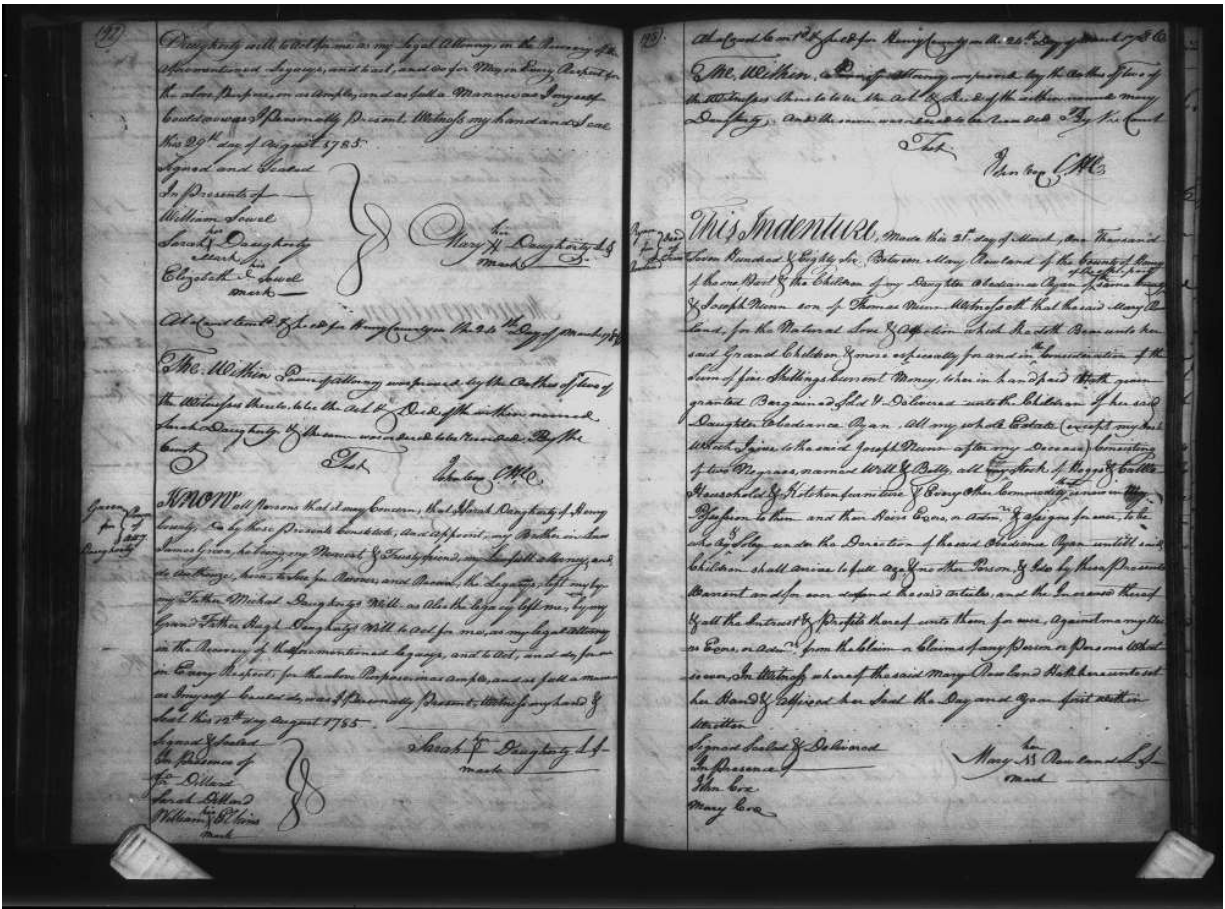 192
Daugherty will to Act for me as my Legal Attorney, in the Recovery of the
aforementioned Legacys, and to act, and do for Me, in Every Respect for
the above Purpose, in as ample, and as full a Manner as I myself
Could do was I Personally Present. Witness my hand and Seal
this 29th day of August 1785
Signed and Sealed
In Presents of
William Sowel
her
Sarah Daugherty
Mark
his
Elizabeth Sowel
mark
her
Mary Daugherty L S
mark
At a Court Contd. & held for Henry County on the 24th Day of March 1786
The Within Power of Attorney was proved by the Oathes of two of
the Witnesses thereto, to be the Act & Deed of the within named
Sarah Daugherty & the same was ordered to be Recorded By the
Court
Test
John Cox CHC
Green
for
Daugherty
Power
of
Atty.
KNOW all Persons that it may Concern, that I Sarah Daugherty of Henry
County, do by these Presents Constitute, and appoint, my Brother in Law
James Green, he being my Nearest & Trusty friend, my Lawfull attorney, and
do Authorize, him, to Sue for Recover, and Receive, the Legacys, left me, by
my Father Michal Daughertys Will, as Also the legacy left me, by my
Grand Father Hugh Daughertys Will to Act for me, as my legal attorney
in the Recovery of the forementioned legacys, and to Act, and do, for me
in Every Respect, for the above Purpose, in as ample, and as full a manner
as I myself Could do, was I Personally Present, Witness my hand &
Seal this 12th day August 1785
Signed & Sealed
In Presence of
Jno Dillard
Sarah Dillard
his
William Elkins
mark
her
Sarah Daugherty L S
mark
193
At a Court Contd. & held for Henry County on the 24th Day of March 1786
The Within, Power of attorney was proved by the Oathes of two of
the Witnesses thereto to be the Act & Deed of the within named Mary
Daugherty, And the same was ordered to be Recorded By the Court
Test
John Cox CHC
Ryan
for
Deed
of
This Indenture, Made this 21st day of March, One Thousand
Seven Hundred & Eighty Six, Between Mary Rowland of the County of Henry
of the one Part & the Children of my Daughter Obediance Ryan of the same County
of the other part
& Joseph Nunn son of Thomas Nunn Witnesseth that the said Mary Row
land, for the Natural Love & Affection which She doth Bear unto her
said Grand Children & more especially for and in the Consideration of the
Sum of five Shillings Current Money, to her in hand paid Hath given
granted Bargained, Sold & Delivered unto the Children of her said
Daughter Obediance Ryan, All my whole Estate (except my
Which I give to the said Joseph Nunn after my Decease) Consisting
of two Negroes, named Will & Betty, all my Stock of Hoggs & Cattle
Household & Kitchen furniture & Every Other Commodity that is now in My
Possession to them and their Heirs Exors, or Admrs & assigns for ever, to be
Soley under the Direction of the said Obediance Ryan untill said
Children shall arrive to full Age & no other Person, & I do by these Presents
Warrent and for ever defend the said articles, and the Increase thereof
& all the Intrust & Profits thereof unto them for ever, Against me my Heirs
Exors, or Admrs, from the Claim or Claims of any Person or Persons What
soever, In Witness whereof the said Mary Rowland Hath hereunto set
her Hand & affixed her Seal the Day and Year first within
Written
Signed Sealed & Delivered
In Presence of
John Cox
Mary Cox
her
Mary Rowland L S
mark